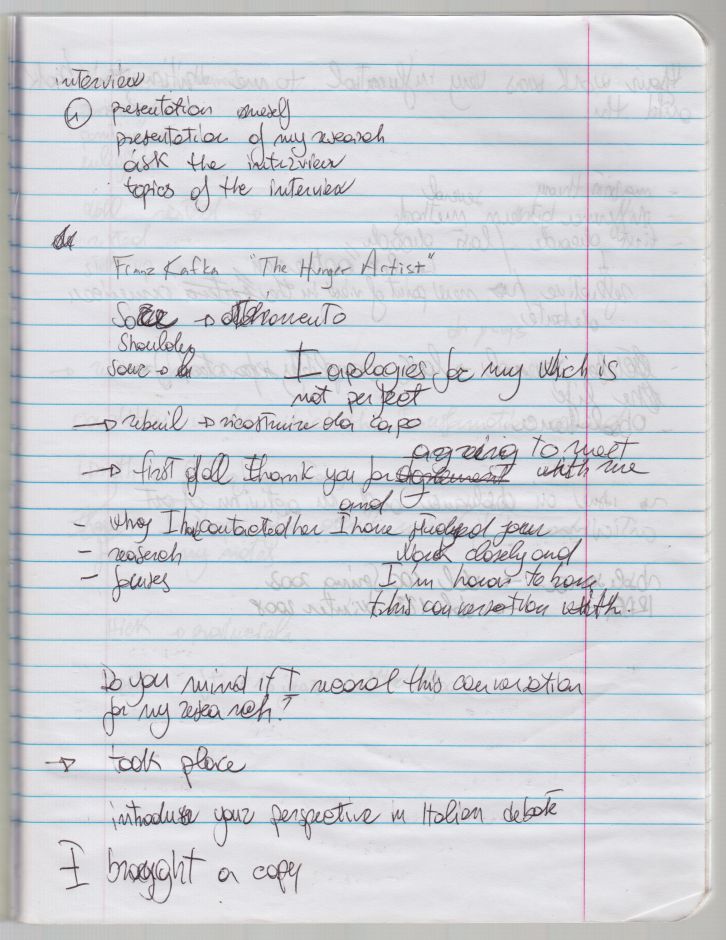 interview
① presentation oneself
presentation of my research
ask the interview
topics of the interview
Franz Kafka "The Hunger Artist"
Shoulder
I apologies for my which is
not perfect
→ rebuil → ricostruire da capo
agreeing to meet
→ first of all thank you for with me
and
- why I have contacted her I have studied your
- research work closely and
- focuses I'm honor to have
this conversation with
Do you mind if I record this conversation
for my research?
→ took place
introduse your perspective in Italian debate
I brought a copy